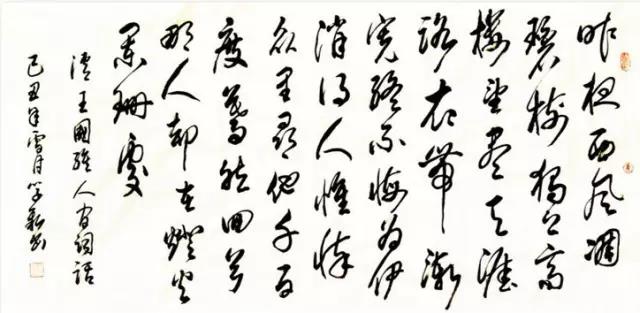 昨夜西风凋
碧樹獨上高
樓望盡天涯
路衣帶漸
寬終不悔为伊
消得人憔悴
众里尋他千百
度驀然回首
那人却在燈火
闌珊處
讀王國維人间詞話
己丑年雪月学新书